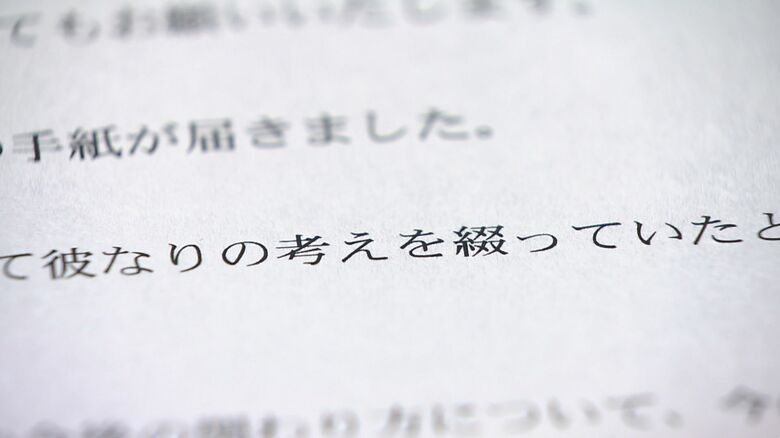 てもお願いいたします。
の手紙が届きました。
て彼なりの考えを綴っていたと
今後の関わり方について、今